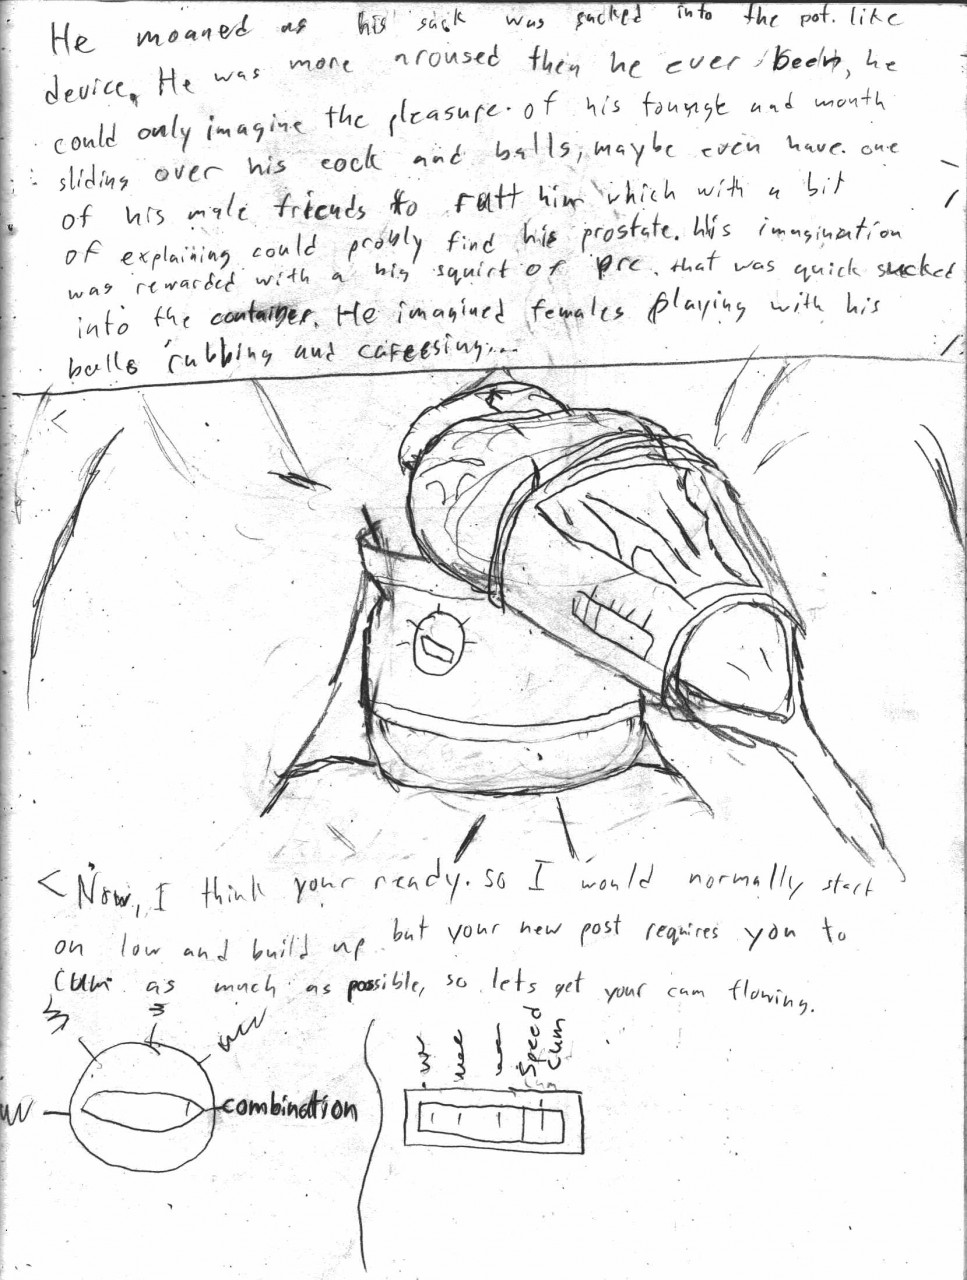 He moaned as his sack was sucked into the pot. like
device. He was more aroused then he ever been, he
could only imagine the pleasure of his toungge and mouth
sliding over his cock and balls, maybe even have one
of his male friends to rutt him which with a bit
of explaining could probly find his prostate. his imagination
was rewarded with a big squirt of pre. that was quick sucked
into the container. He imagined females playing with his
balls rubbing and caressing...
< Now, I think your ready. so I would normally start
on low and build up but your new post requires you to
cum as much as possible, so lets get your cum flowing.
combination
Speed
cum